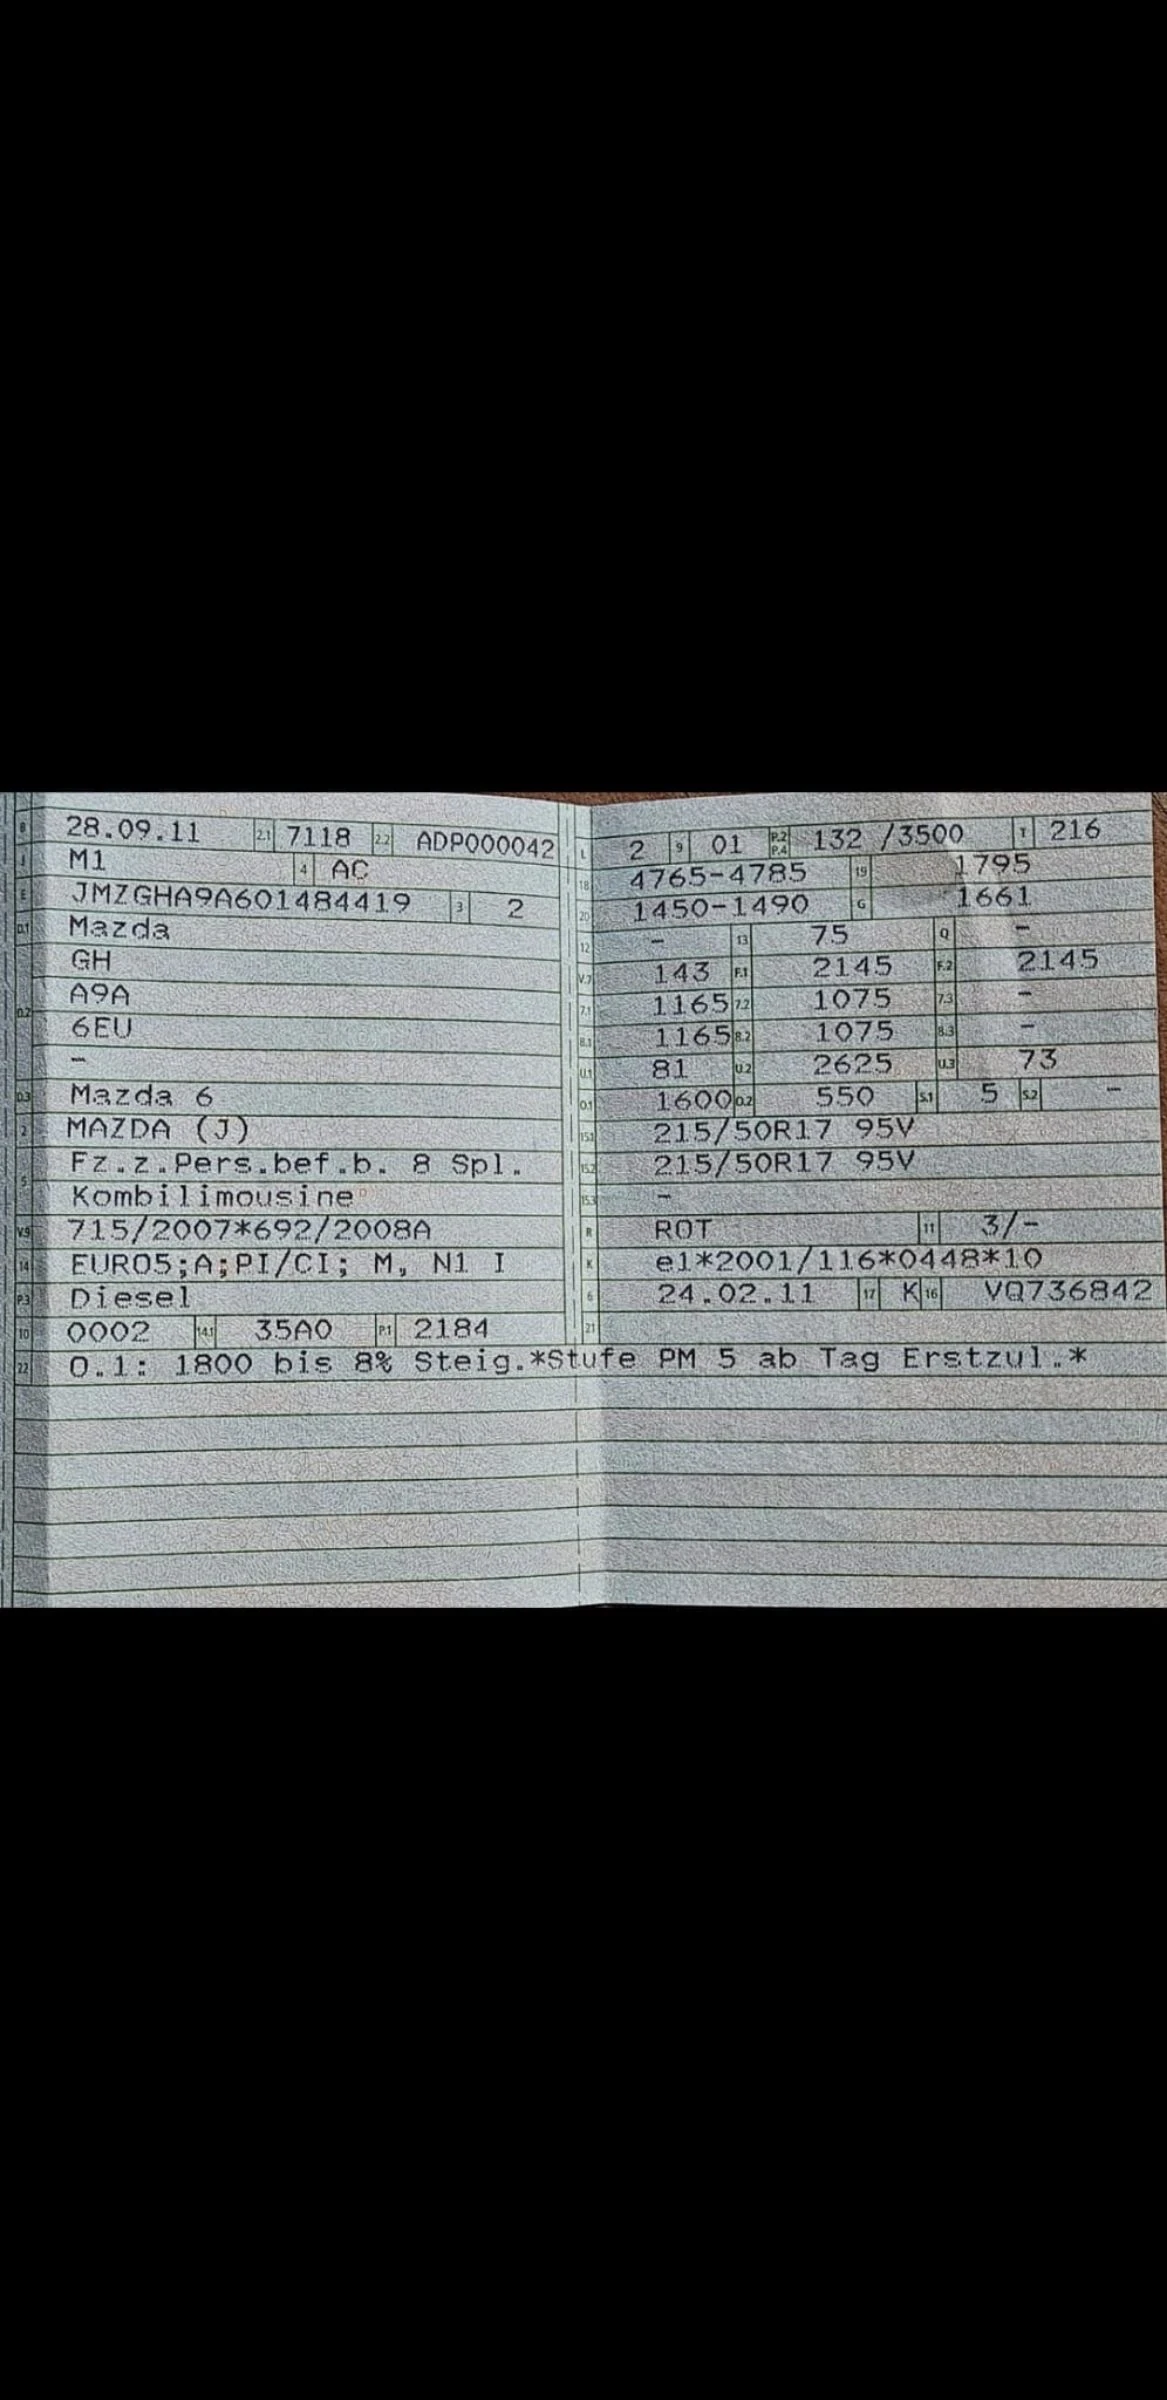 B 28.09.11 2.1 7118 2.2 ADP000042
J M1 4 AC
E JMZGHA9A601484419 3 2
D.1 Mazda
D.2 GH
A9A
6EU
-
D.3 Mazda 6
2 MAZDA (J)
5 Fz.z.Pers.bef.b. 8 Spl.
Kombilimousine
V.9 715/2007*692/2008A
14 EURO5;A;PI/CI; M, N1 I
P.3 Diesel
10 0002 14.1 35A0 P.1 2184
L 2 9 01 P.2 P.4 132 /3500 T 216
18 4765-4785 19 1795
20 1450-1490 G 1661
12 - 13 75 Q -
V.7 143 F.1 2145 F.2 2145
7.1 1165 7.2 1075 7.3 -
8.1 1165 8.2 1075 8.3 -
U.1 81 U.2 2625 U.3 73
O.1 1600 O.2 550 S.1 5 S.2 -
15.1 215/50R17 95V
15.2 215/50R17 95V
15.3 -
R ROT 11 3/-
K e1*2001/116*0448*10
6 24.02.11 17 K 16 VQ736842
21
22 O.1: 1800 bis 8% Steig.*Stufe PM 5 ab Tag Erstzul.*